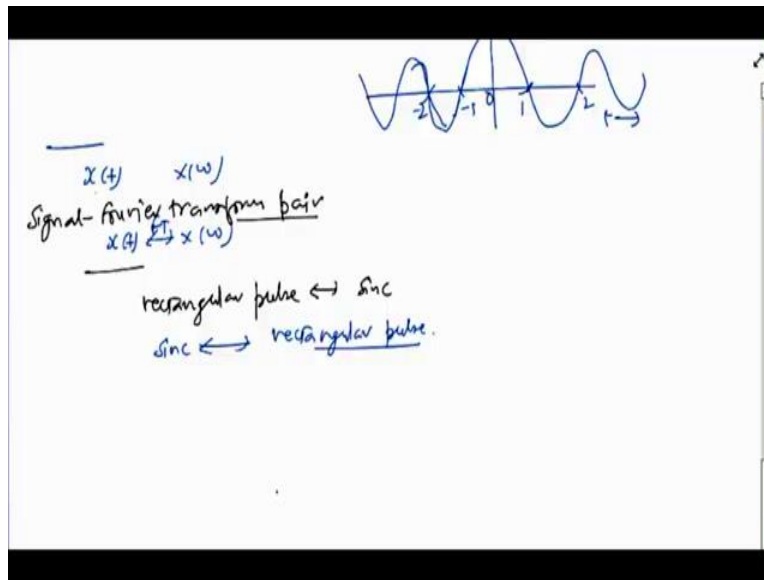 -2 -1 0 1 2 t→
x(t) x(ω)
Signal-Fourier transform pair
x(t) FT↔ x(ω)
rectangular pulse ↔ sinc
sinc ↔ rectangular pulse.